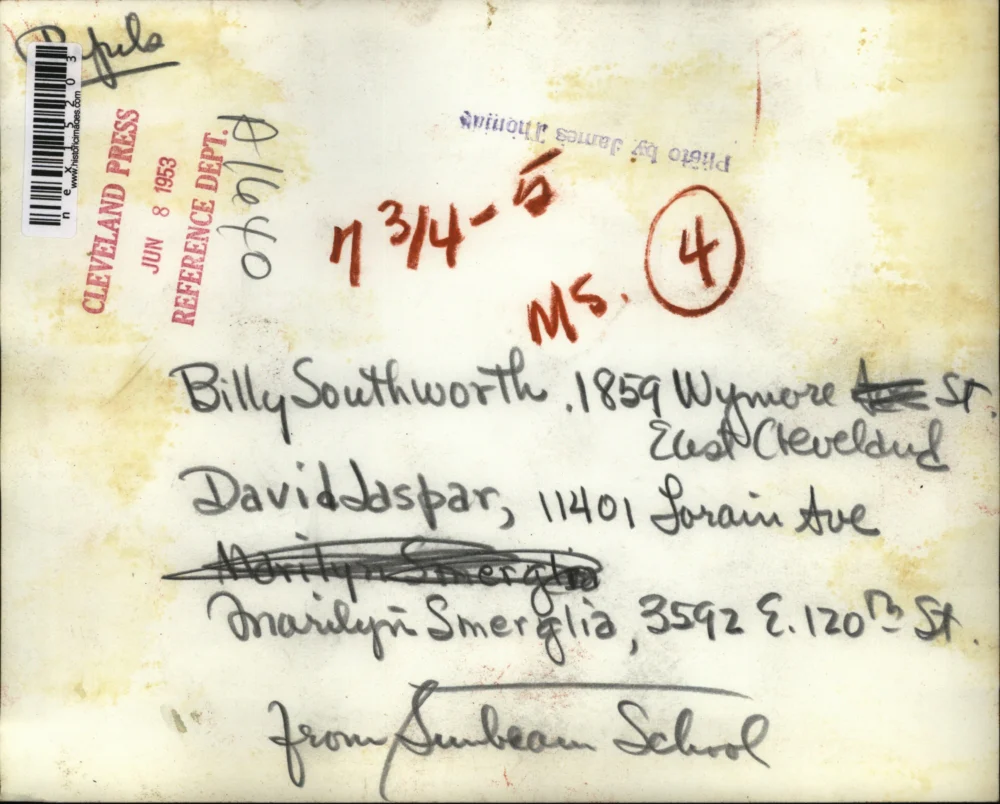 nex15203
www.historicimages.com
CLEVELAND PRESS
JUN 8 1953
REFERENCE DEPT.
A1640
Photo by James Thomas
7 3/4 - 5
MS. 4
Billy Southworth, 1859 Wymore Ave St
East Cleveland
David Jaspar, 11401 Lorain Ave
Marilyn Smerglia
Marilyn Smerglia, 3592 E. 120th St.
from Sunbeam School